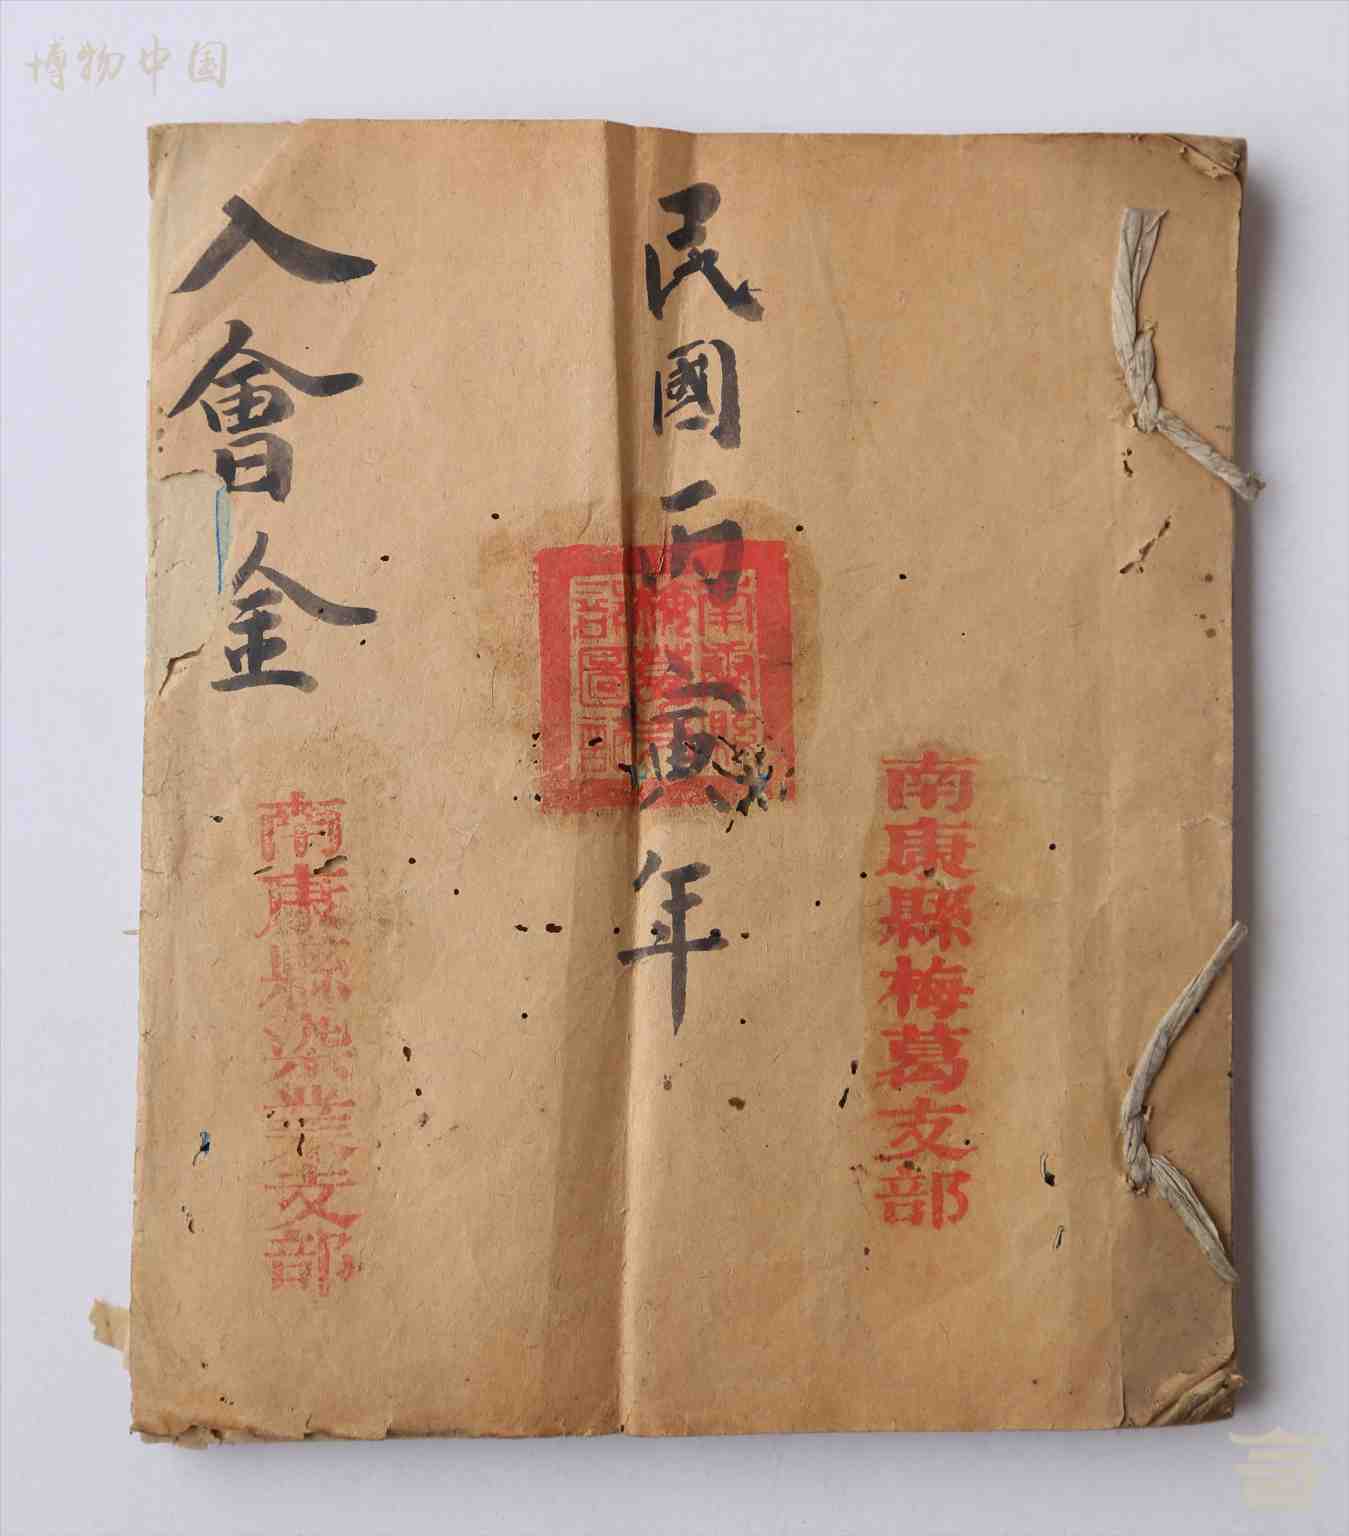 博物中国
南康縣梅葛支部
民國丙寅年
入會金
南康縣染業支部